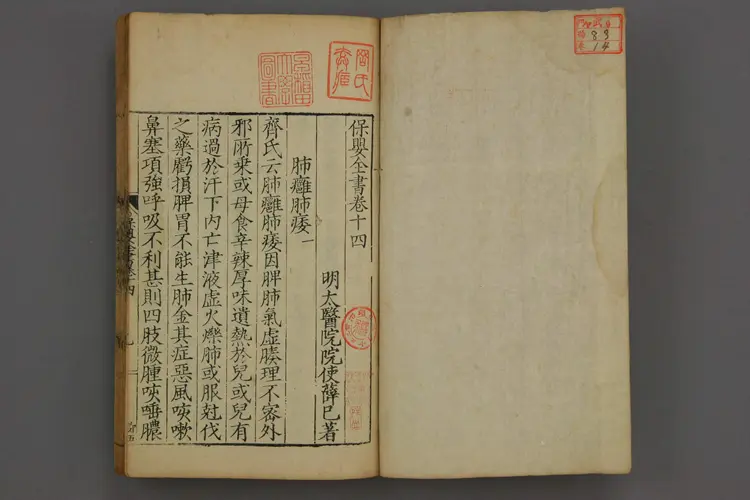 保嬰全書卷十四
明太醫院院使薛已著
肺癰肺痿一
齊氏云肺癰肺痿因脾肺氣虛腠理不密外
邪所乗或母食辛辣厚味遺熱於兒或兒有
病過於汗下內亡津液虛火爍肺或服尅伐
之藥虧損脾胃不能生肺金其症惡風咳嗽
鼻塞項強呼吸不利甚則四肢微腫咳唾膿
保嬰全書卷十四
早稲田大學圖書
83
14